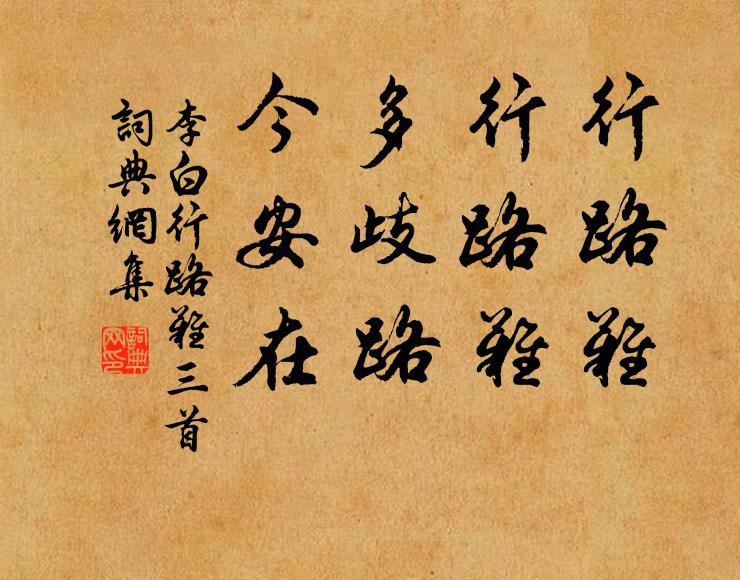 行路難
行路難
多歧路
今安在
李白行路難三首
詞典網集
詞典網印